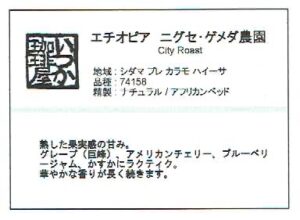 いつか
珈琲屋
エチオピア ニグセ・ゲメダ農園
City Roast
地域 : シダマ ブレ カラモ ハイーサ
品種 : 74158
精製 : ナチュラル / アフリカンベッド
熟した果実感の甘み。
グレープ（巨峰）、アメリカンチェリー、ブルーベリ
ージャム、かすかにラクティク。
華やかな香りが長く続きます。